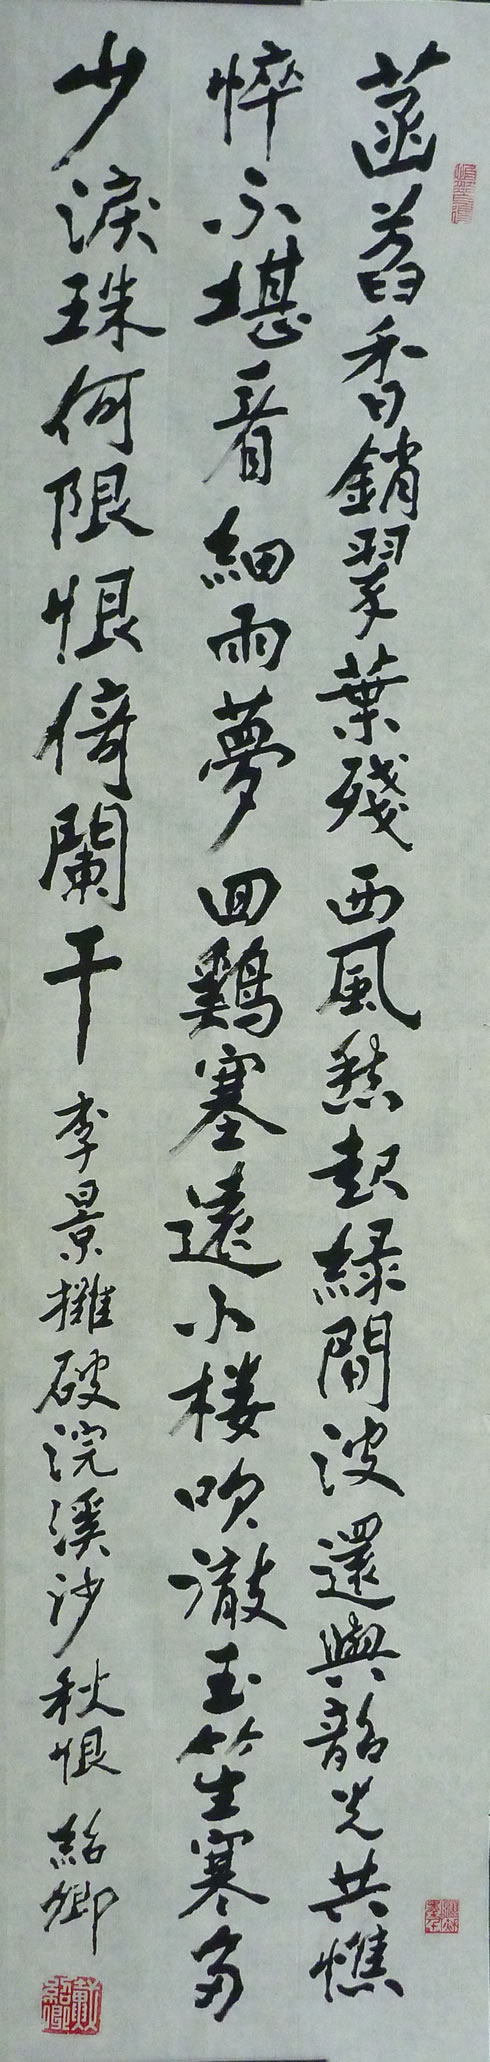 菡萏香銷翠葉殘西風愁起緑間波還與韶光共憔
悴不堪看細雨夢回鷄塞遠小楼吹澈玉笙寒多
少淚珠何限恨倚闌干 李景攤破浣溪沙秋恨 紹卿
戴紹卿